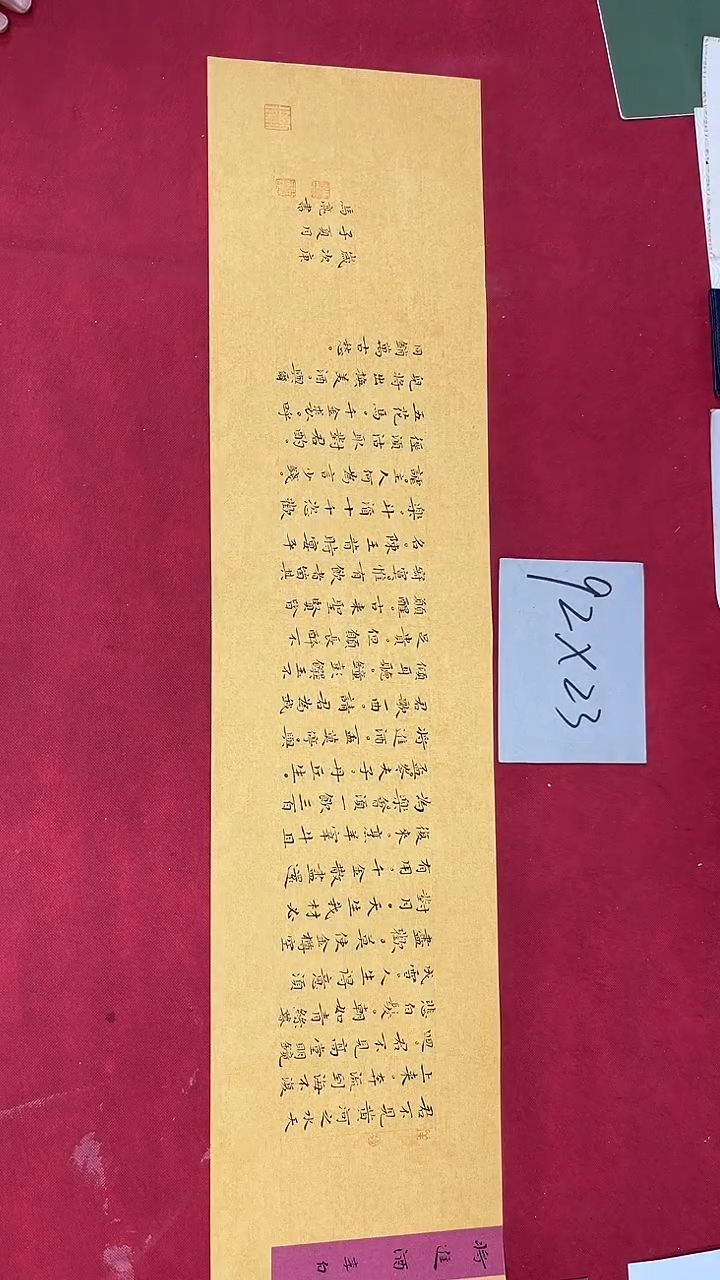 將進酒 李白
君不見黃河之水天
上来。奔流到海不復
迴。君不見高堂明鏡
悲白髮。朝如青絲暮
成雪。人生得意須
盡歡。莫使金樽空
對月。天生我材必
有用，千金散盡還
復來。烹羊宰牛且
為樂，會須一飲三百
盃。岑夫子，丹丘生。
將進酒。盃莫停。與
君歌一曲。請君為我
傾耳聽。鐘鼓饌玉不
足貴。但願長醉不
願醒。古来聖賢皆
寂寞。惟有飲者留其
名。陳王昔時宴平
樂，斗酒十千恣歡
謔。主人何為言少錢
徑須沽取對君酌。
五花馬，千金裘。呼
兒將出換美酒，與爾
同銷萬古愁。
歲次庚
子夏月
馬亮書
92X23